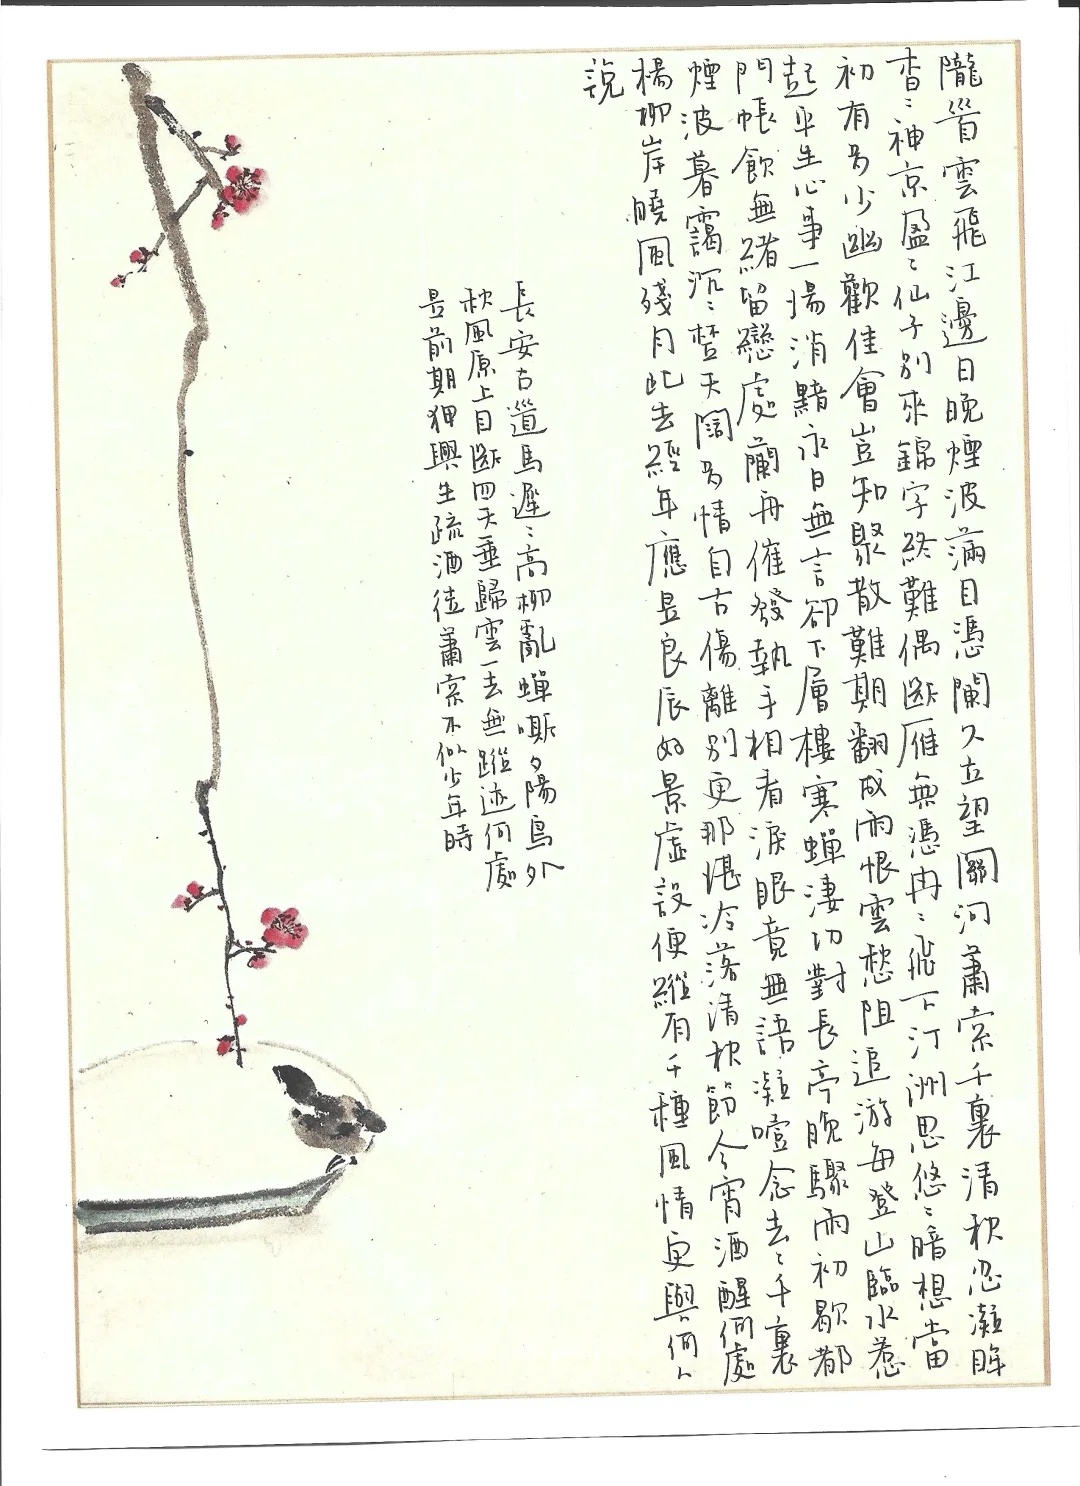 隴首雲飛江邊日晚煙波滿目憑闌久立望關河蕭索千裏清秋忍凝眸
杳〻神京盈〻仙子別來錦字終難偶斷雁無憑冉〻飛下汀洲思悠〻暗想當
初有多少幽歡佳會豈知聚散難期翻成雨恨雲愁阻追游每登山臨水惹
起平生心事一場消黯永日無言卻下層樓寒蟬淒切對長亭晚驟雨初歇都
門帳飲無緒留戀處蘭舟催發執手相看淚眼竟無語凝噎念去〻千裏
煙波暮靄沉〻楚天闊多情自古傷離別更那堪冷落清秋節今宵酒醒何處
楊柳岸曉風殘月此去經年應是良辰好景虛設便縱有千種風情更與何人
說
長安古道馬遲〻高柳亂蟬嘶夕陽鳥外
秋風原上目斷四天垂歸雲一去無蹤迹何處
是前期狎興生疏酒徒蕭索不似少年時